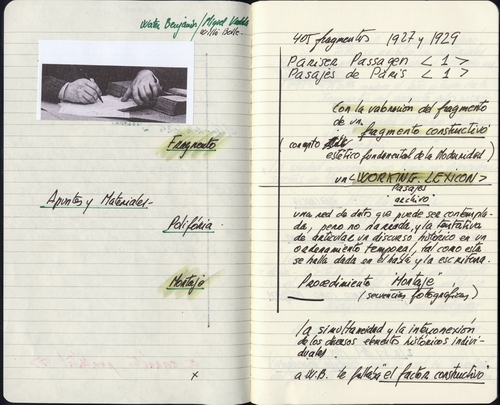 Walter Benjamin/Miguel
Willi Bolle.
Fragmento
Apuntes y Materiales.
Polifónia.
Montaje
x
405 fragmentos 1927 y 1929
Pariser Passagen < 1 >
Pasajes de París < 1 >
Con la valoración del fragmento
de un fragmento constructivo
(concepto
estético fundamental de la Modernidad)
un <WORKING LEXICON>
Pasajes
archivo.
una red de datos que puede ser contempla-
da, pero no narrada, y la tentativa
de articular un discurso histórico en un
ordenamiento temporal, tal como este
se halla dada en el habla y la escritura.
Procedimiento "Montaje"
(secuencias fotográficas)
la simultaneidad y la interconexión
de los diversos elementos históricos indivi-
duales.
a W.B. le faltaba "el factor constructivo"